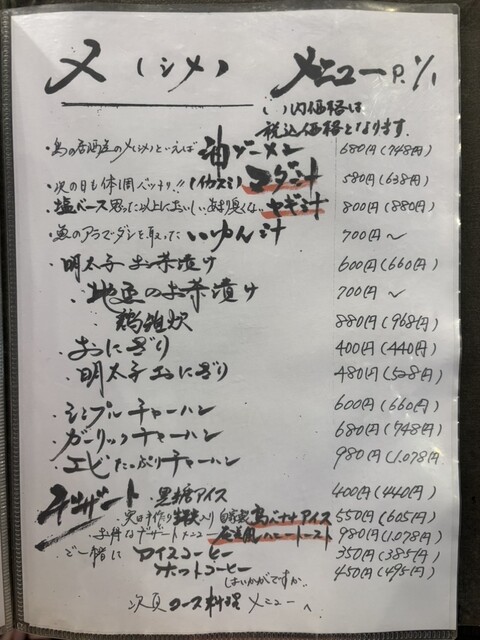 〆(シメ) メニュー P.1/1
( )内価格は
税込価格となります。
・島の居酒屋の〆(シメ)といえば 油ゾーメン 680円(748円)
・次の日も体調バッチリ!!(イカスミ) マダ汁 580円(638円)
・塩ベース 思った以上においしい あまり臭くない ヤギ汁 800円(880円)
・魚のアラでダシを取った いゅん汁 700円〜
・明太子お茶漬け 600円(660円)
・地魚のお茶漬け 700円〜
・鶏雑炊 880円(968円)
・おにぎり 400円(440円)
・明太子おにぎり 480円(528円)
・シンプルチャーハン 600円(660円)
・ガーリックチャーハン 680円(748円)
・エビたっぷりチャーハン 980円(1,078円)
デザート ・黒糖アイス 400円(440円)
入り 自家製 島バナナアイス 550円(605円)
デザートメニュー ハニートースト 980円(1,078円)
・ご一緒に アイスコーヒー 350円(385円)
ホットコーヒー 450円(495円)
はいかがですか
次頁 コース料理 メニューへ